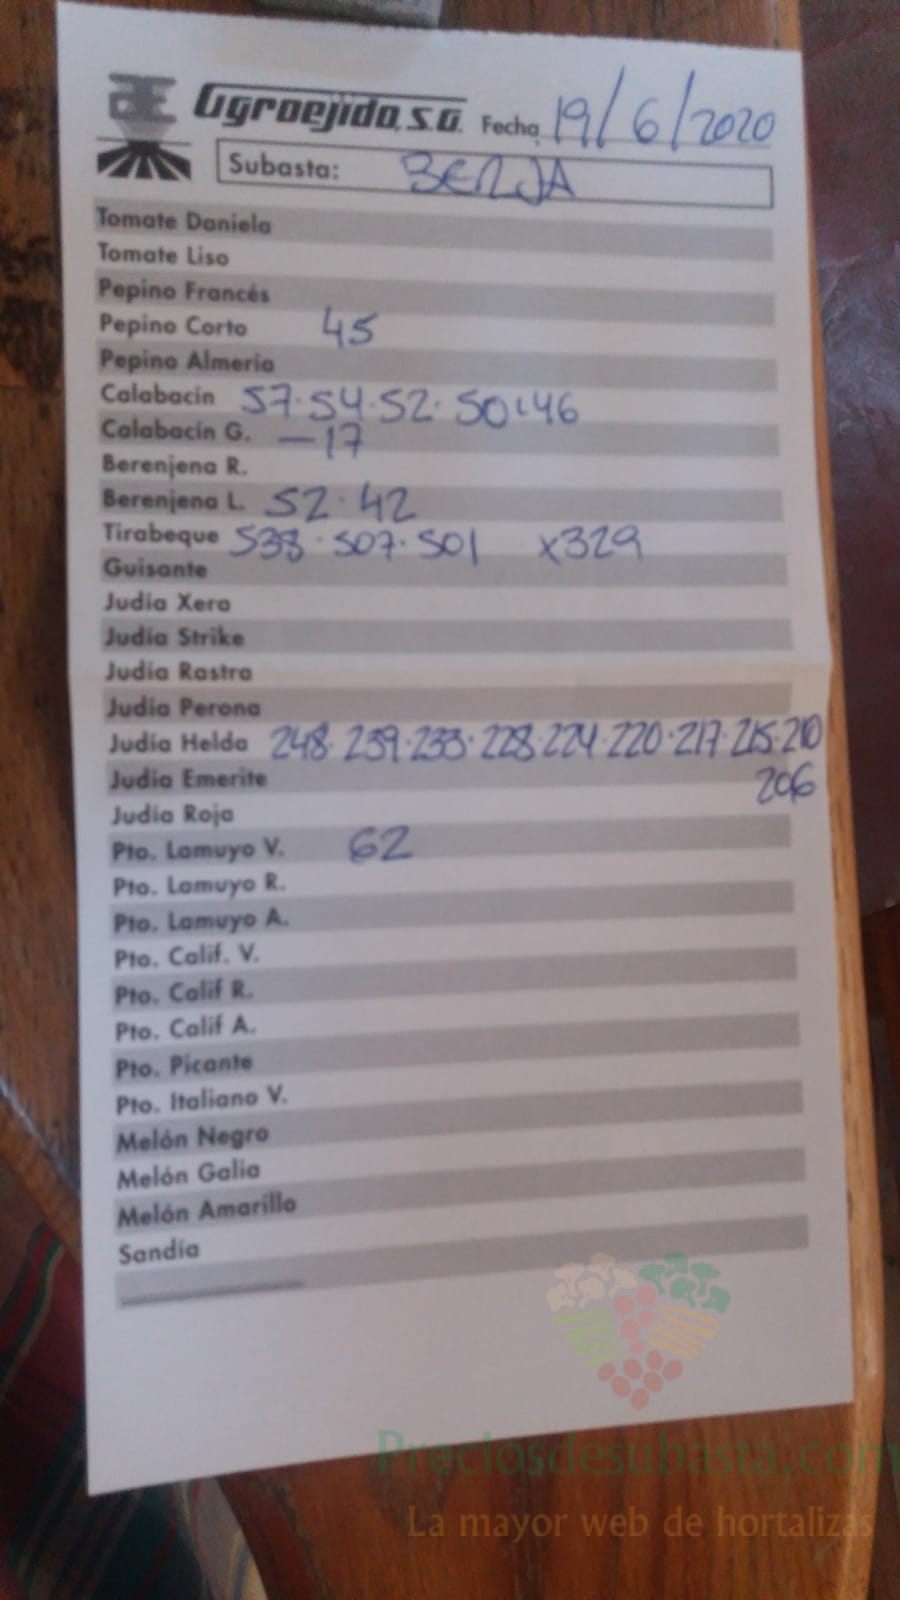 Agroejido, S.A. Fecha 19/6/2020
Subasta: BERJA
Tomate Daniela
Tomate Liso
Pepino Francés
Pepino Corto 45
Pepino Almería
Calabacín 57·54·52·50·46
Calabacín G. —17
Berenjena R.
Berenjena L. 52·42
Tirabeque 538·507·501 x329
Guisante
Judía Xera
Judía Strike
Judía Rastra
Judía Perona
Judía Helda 248·239·233·228·224·220·217·215·210
Judía Emerite 206
Judía Roja
Pto. Lamuyo V. 62
Pto. Lamuyo R.
Pto. Lamuyo A.
Pto. Calif. V.
Pto. Calif R.
Pto. Calif A.
Pto. Picante
Pto. Italiano V.
Melón Negro
Melón Galia
Melón Amarillo
Sandía
Preciosdesubasta.com
La mayor web de hortalizas